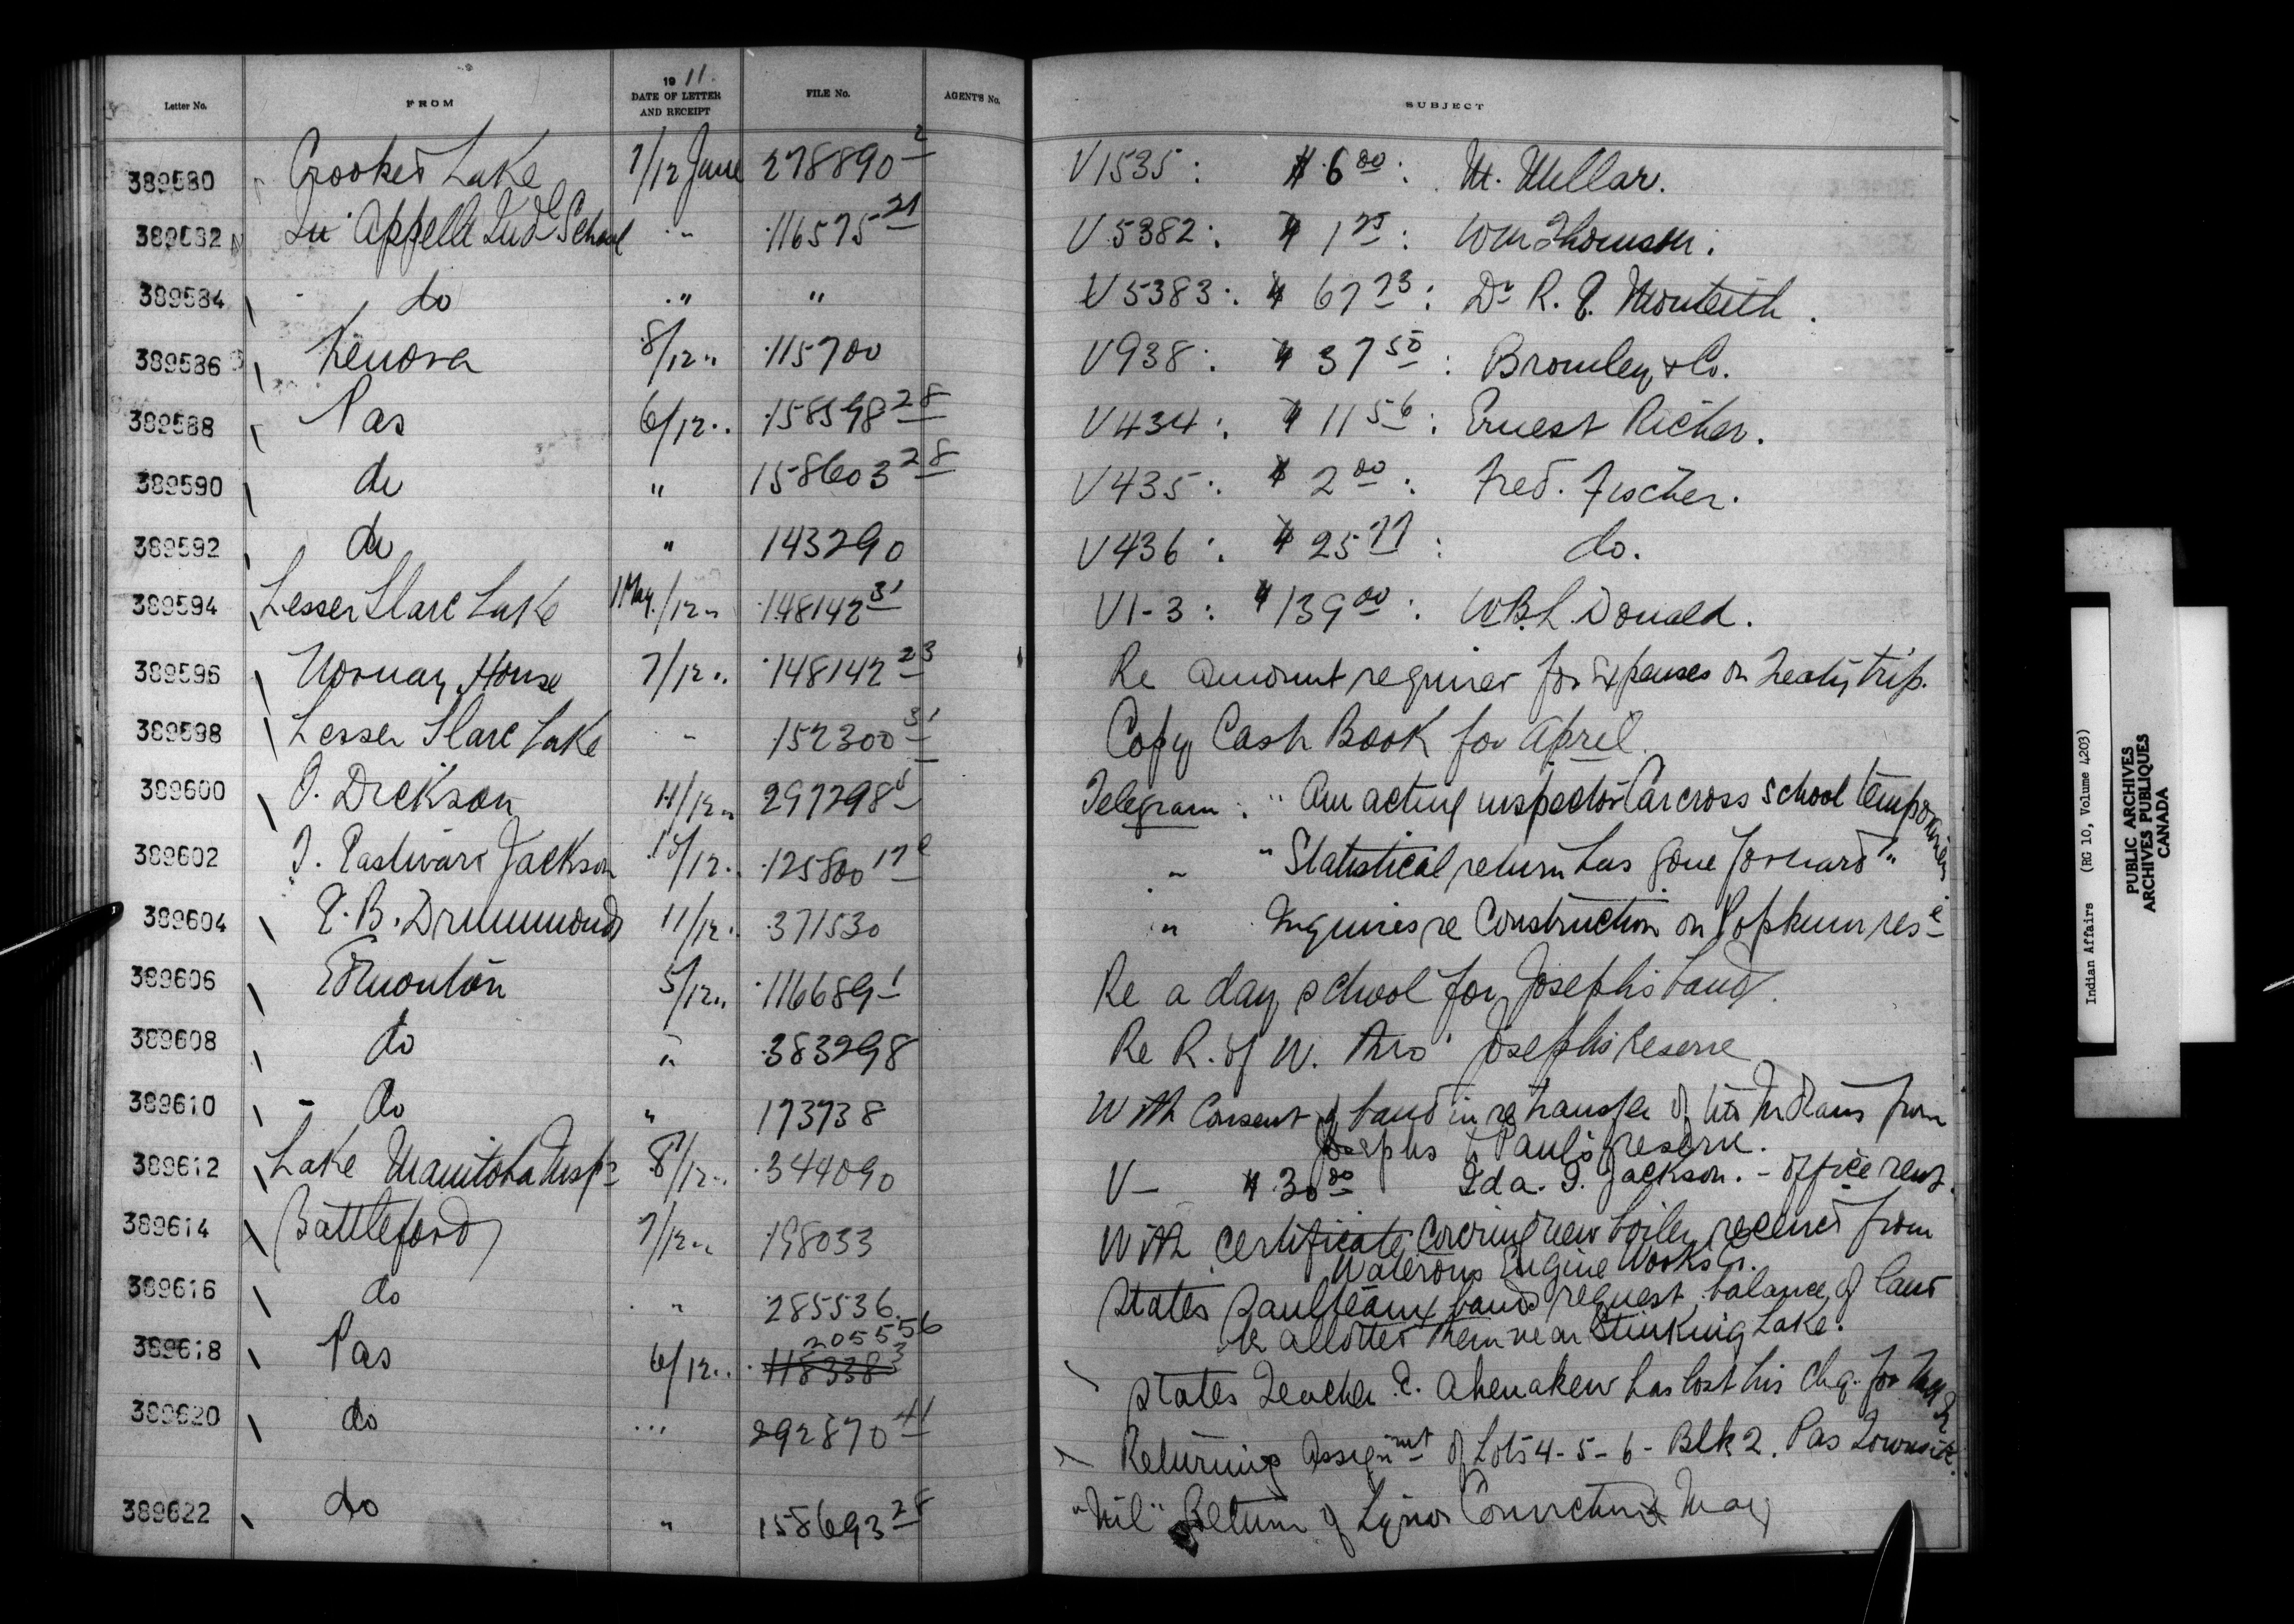 Letter No. FROM 1911. DATE OF LETTER AND RECEIPT FILE No. AGENT'S No. SUBJECT
389580 Crooked Lake 7/12 June 278890-2 V1535: $6.00: M. Millar.
389582 Qu'Appelle Indl School " 116575-21 V5382: $1 25: Wm Thomson.
389584 do " " V5383: $67 73: Dr R. E. Monteith.
389586 Kenora 8/12 " 115700 V938: $37 50: Bromley & Co.
389588 Pas 6/12 " 158598 28 V434: $11 56: Ernest Richer.
389590 do " 158603 28 V435: $2 00: Fred. Fischer.
389592 do " 143290 V436: $25 77: do.
389594 Lesser Slave Lake 1 May/12 " 148142 31 V1-3: $139 00: W.B.L. Donald.
389596 Norway House 7/12 " 148142 23 Re amount required for Expenses on Treaty trip.
389598 Lesser Slave Lake " 152300 31 Copy Cash Book for April.
389600 Dickson 11/12 " 297298 Telegram: "Am acting inspector Carcross School temporarily
389602 Eastward Jackson 10/12 " 125800 17 " "Statistical return has gone forward"
389604 E. B. Drummond 11/12 " 371530 " Inquires re Construction on Popkum rese
389606 Edmonton 5/12 " 116689-1 Re a day school for Joseph's band.
389608 do " 383298 Re R. of W. thro' Joseph's Reserve
389610 do " 173738 With Consent of band in re transfer of Indians from
Josephs to Paul's reserve.
389612 Lake Manitoba Insp 8/12 " 344090 V- $30 00 Ida. Jackson. - Office rent.
389614 Battleford 7/12 " 198033 With certificate covering new boiler received from
Waterous Engine Works Co.
389616 do " 285536 States Saulteaux band request balance of land
be allotted them near Stinking Lake.
389618 Pas 6/12 " 205556 118338 3 States Teacher E. Ahenakew has lost his chq. for
389620 do " 292870 41 Returning Assignmt of Lots 4-5-6- Blk 2. Pas Townsite.
389622 do " 158693 28 "Nil" Return of Liquor Convictions May
Indian Affairs (RG 10, Volume 4203)
PUBLIC ARCHIVES
ARCHIVES PUBLIQUES
CANADA